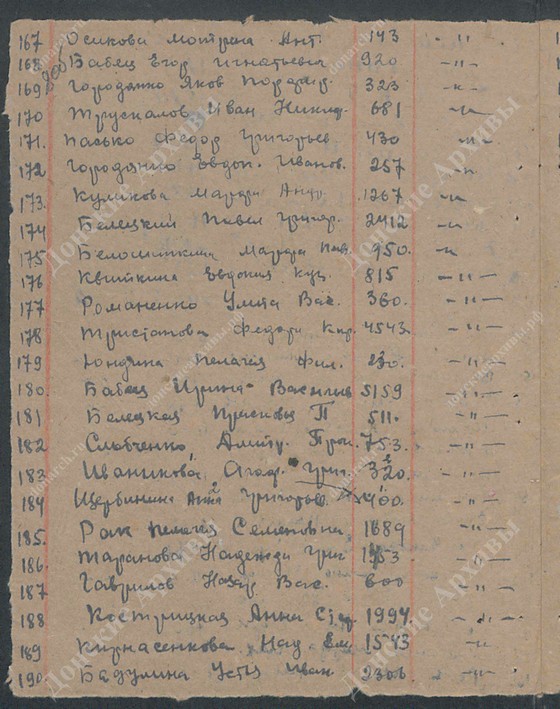 167 Осикова Мотрена Ант. 143 - " -
168 Бабец Егор Игнатьевич 920 - " -
169 Городянко Яков Порфир. 323 - " -
170 Трускалов Иван Никиф. 681 - " -
171. Пасько Федор Григорьев 430 - " -
172 Городянко Евдок. Иванов. 257 - " -
173. Куликова Марфа Андр. 1267 - " -
174 Белецкий Павел Григор. 2412 - " -
175 Марфа 950. - " -
176 Квиткина Евдокия Куз. 815 - " -
177 Романенко Улита Вас. 360. - " -
178 Федора Кир. 4543. - " -
179 Юндина Пелагея Фил. 230. - " -
180. Бабец Ирина Васильев 5159 - " -
181 Белецкая Прасковья П 511. - " -
182 Слобченко Дмитр. Прок. 753. - " -
183 Иваникова Агаф. Григ. 320. - " -
184 Щербинина Анна Григорьев. 400. - " -
185. Рак Пелагея Семеновна 1689 - " -
186. Таранова Надежда Григ 1953 - " -
187 Гаврилов Назар Вас. 600 - " -
188 Кострицкая Анна 1994 - " -
189 Кирнасенкова Над. Ем. 1543 - " -
190. Бадулина Устья Иван 2306 - " -
Донские Архивы
donarch.ru
донскиеархивы.рф